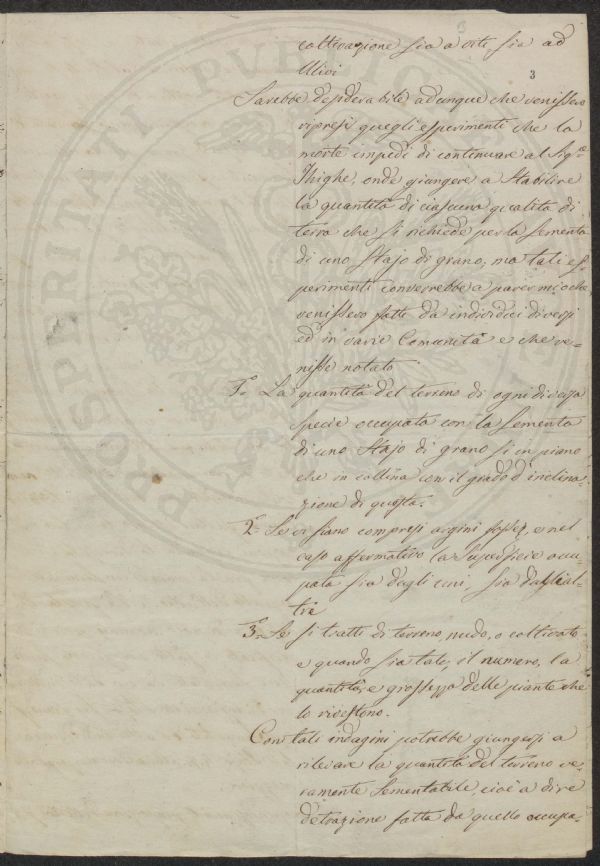 3
coltivazione sia a viti sia ad
Ulivi
3
Sarebbe desiderabile adunque che venissero
ripresi quegli esperimenti che la
morte impedì di continuare al Sig.re
Thighe, onde giungere a stabilire
la quantità di ciascuna qualità di
terra che si richiede per la sementa
di uno stajo di grano; ma tali es-
perimenti converrebbe a parer mio che
venissero fatti da individui diversi
ed in varie Comunità e che ve-
nisse notato
1.° La quantità del terreno di ogni diversa
specie occupata con la sementa
di uno stajo di grano si in piano
che in collina con il grado d'inclina-
zione di questa.
2.° Se vi siano compresi argini fosse, e nel
caso affermativo la superficie occu-
pata sia dagli uni, sia dall'al-
tre
3.° Se si tratti di terreno nudo, o coltivato
e quando sia tale, il numero, la
quantità, e grossezza delle piante che
lo rivestono.
Con tali indagini potrebbe giungersi a
rilevare la quantità del terreno ve-
ramente sementabile cioè a dire
detrazione fatta da quello occupa-
PROSPERITATI PUBLICAE